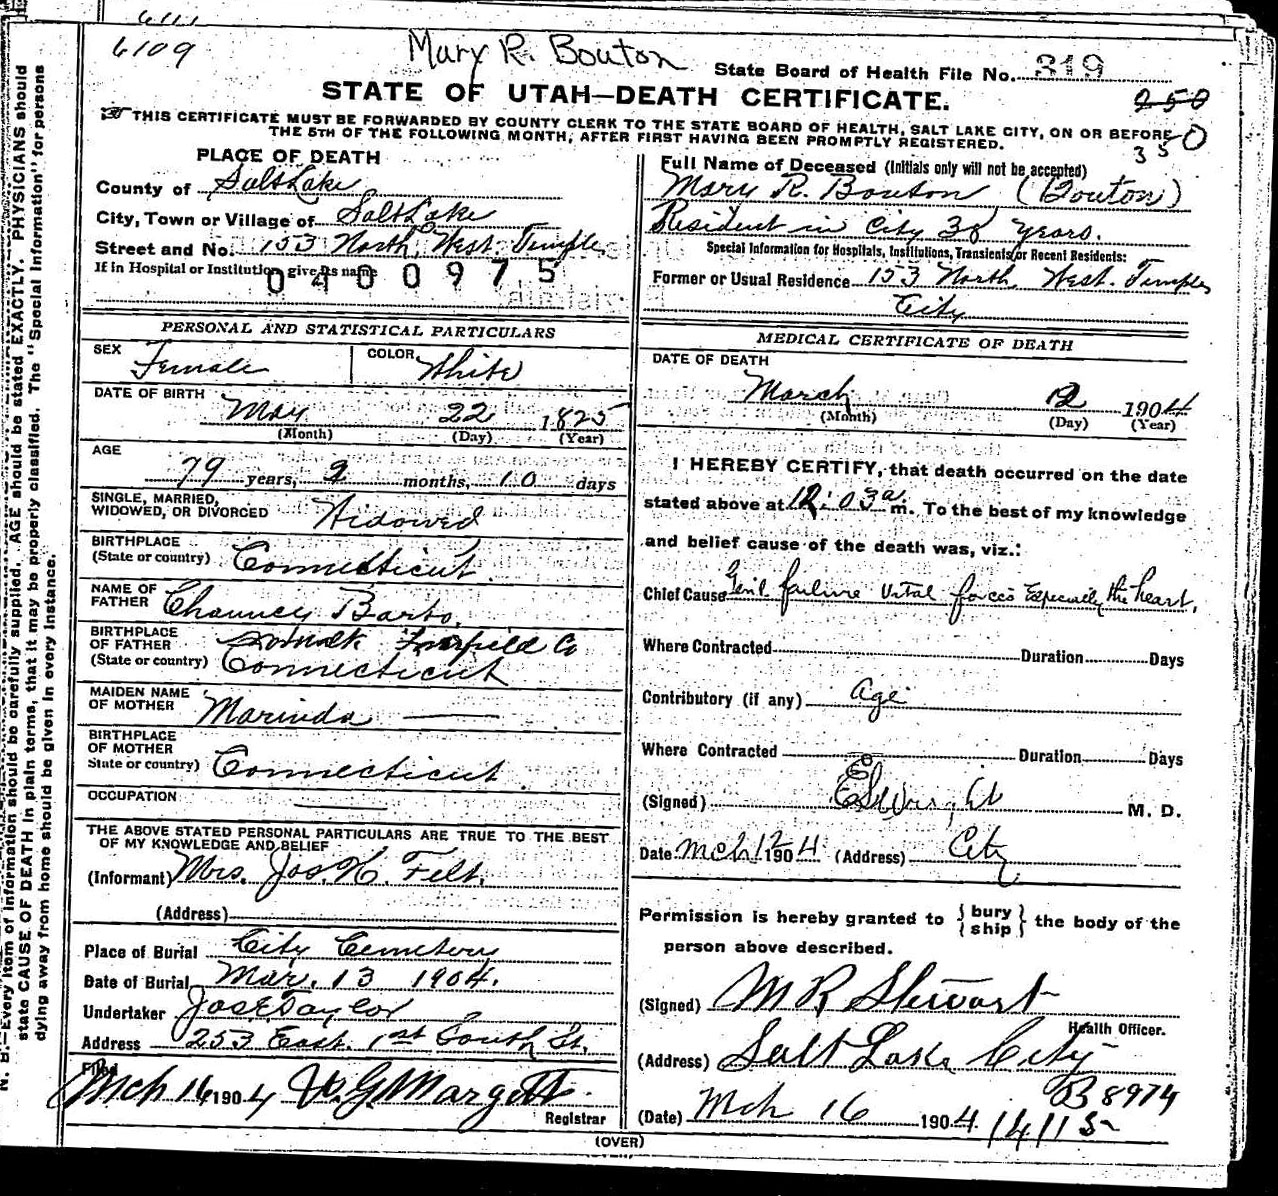 6111
6109
Mary R. Bouton
State Board of Health File No. 319
STATE OF UTAH—DEATH CERTIFICATE.
250
THIS CERTIFICATE MUST BE FORWARDED BY COUNTY CLERK TO THE STATE BOARD OF HEALTH, SALT LAKE CITY, ON OR BEFORE
THE 5TH OF THE FOLLOWING MONTH, AFTER FIRST HAVING BEEN PROMPTLY REGISTERED.
350
PLACE OF DEATH
County of Salt Lake
City, Town or Village of Salt Lake
Street and No. 153 North West Temple
If in Hospital or Institution give its name
0400975
Full Name of Deceased (Initials only will not be accepted)
Mary R. Bouton (Bouton)
Resident in City 38 Years.
Special Information for Hospitals, Institutions, Transients or Recent Residents:
Former or Usual Residence 153 North West Temple
City
PERSONAL AND STATISTICAL PARTICULARS
SEX Female COLOR White
DATE OF BIRTH
May 22 1825
(Month) (Day) (Year)
AGE
79 years, 9 months, 10 days
SINGLE, MARRIED,
WIDOWED, OR DIVORCED Widowed
BIRTHPLACE
(State or country) Connecticut
NAME OF
FATHER Chauncey Barto.
BIRTHPLACE
OF FATHER Norwalk Fairfield Co
(State or country) Connecticut
MAIDEN NAME
OF MOTHER Marinda
BIRTHPLACE
OF MOTHER
State or country) Connecticut
OCCUPATION
THE ABOVE STATED PERSONAL PARTICULARS ARE TRUE TO THE BEST
OF MY KNOWLEDGE AND BELIEF
(Informant) Mrs. Jos. H. Felt.
(Address)
Place of Burial City Cemetery
Date of Burial Mar. 13 1904.
Undertaker Jos E Taylor
Address 253 East 1st South St.
Filed
Mch 16 1904 Margetts
Registrar
MEDICAL CERTIFICATE OF DEATH
DATE OF DEATH
March 12 1904
(Month) (Day) (Year)
I HEREBY CERTIFY, that death occurred on the date
stated above at 12:03 a m. To the best of my knowledge
and belief cause of the death was, viz.:
Chief Cause Gen'l failure vital forces Especially the heart.
Where Contracted Duration Days
Contributory (if any) Age
Where Contracted Duration Days
(Signed) M. D.
Date Mch 12 1904 (Address) City
Permission is hereby granted to { bury
ship } the body of the
person above described.
(Signed) M R Stewart
Health Officer.
(Address) Salt Lake City
B 8974
(Date) Mch 16 1904. 1411 S
(OVER)
N. B.—Every item of information should be carefully supplied. AGE should be stated EXACTLY. PHYSICIANS should
state CAUSE OF DEATH in plain terms, that it may be properly classified. The "Special Information" for persons
dying away from home should be given in every instance.